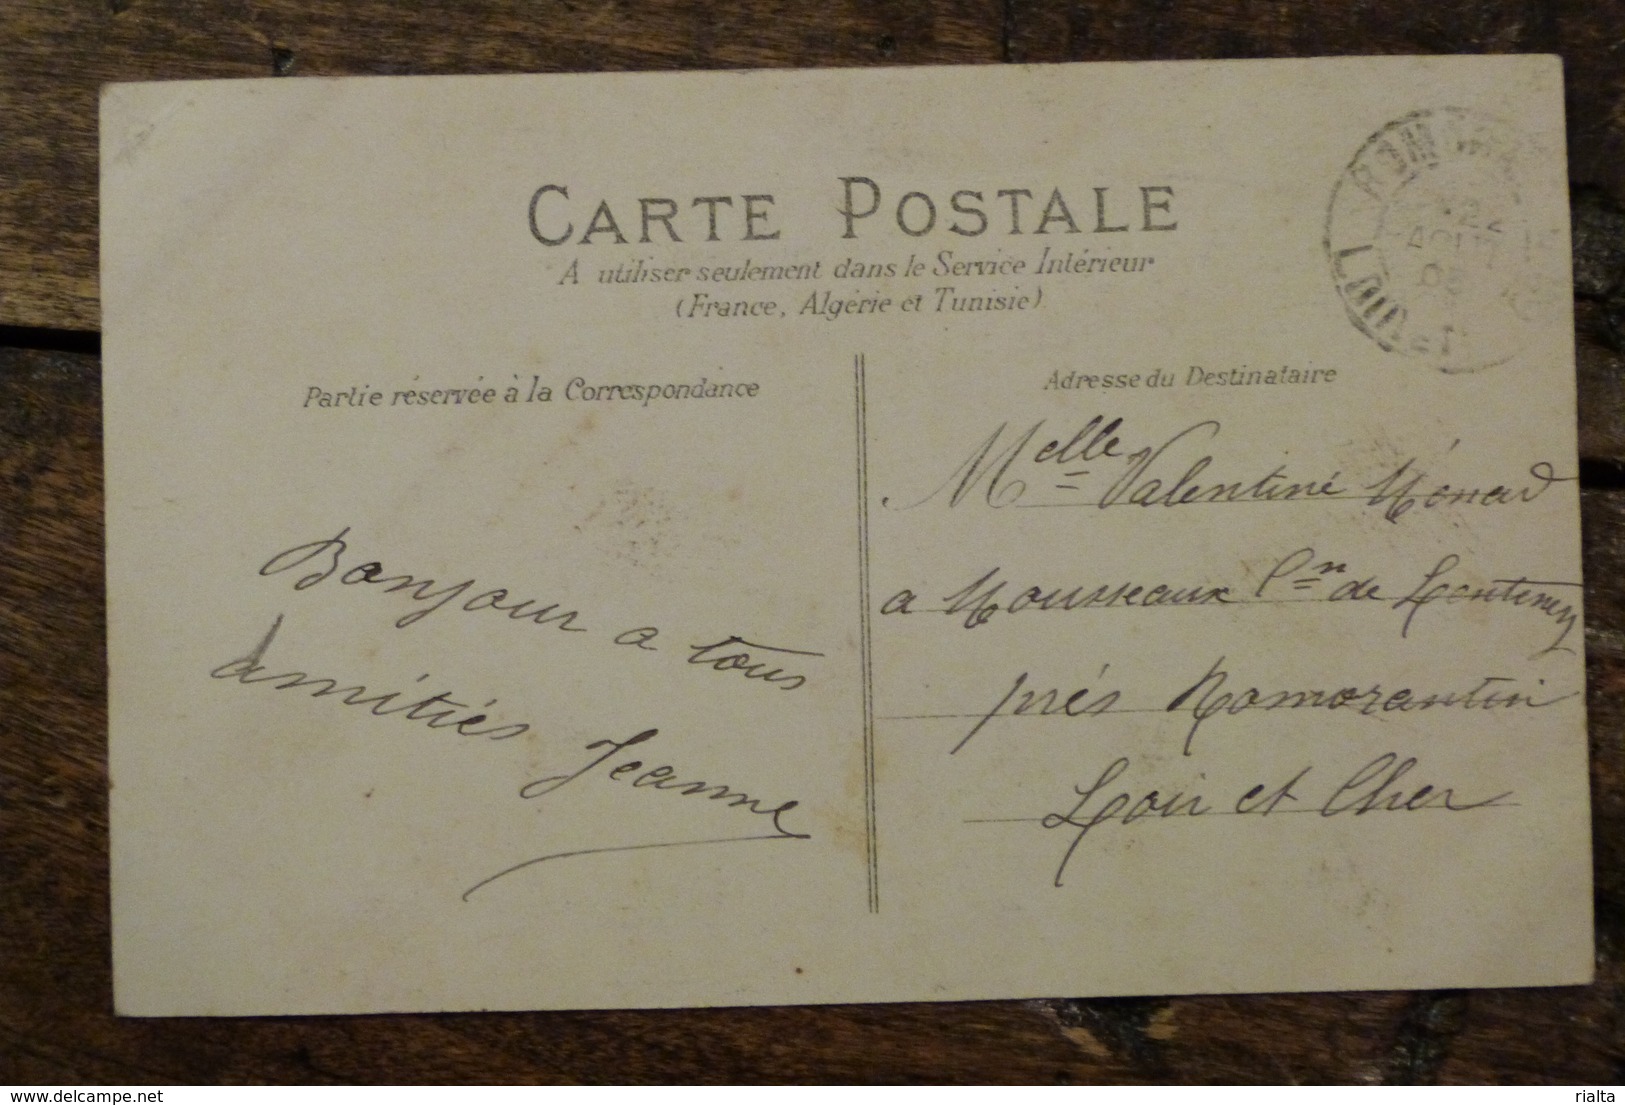 CARTE POSTALE
A utiliser seulement dans le Service Intérieur
(France, Algérie et Tunisie)
Partie réservée à la Correspondance
Adresse du Destinataire
Bonjour a tous
amitiés Jeanne
Melle Valentine Ménard
a Mousseaux Cn de Lontenay
prés Romorantin
Loir et Cher
AOUT
delcampe.net
rialta